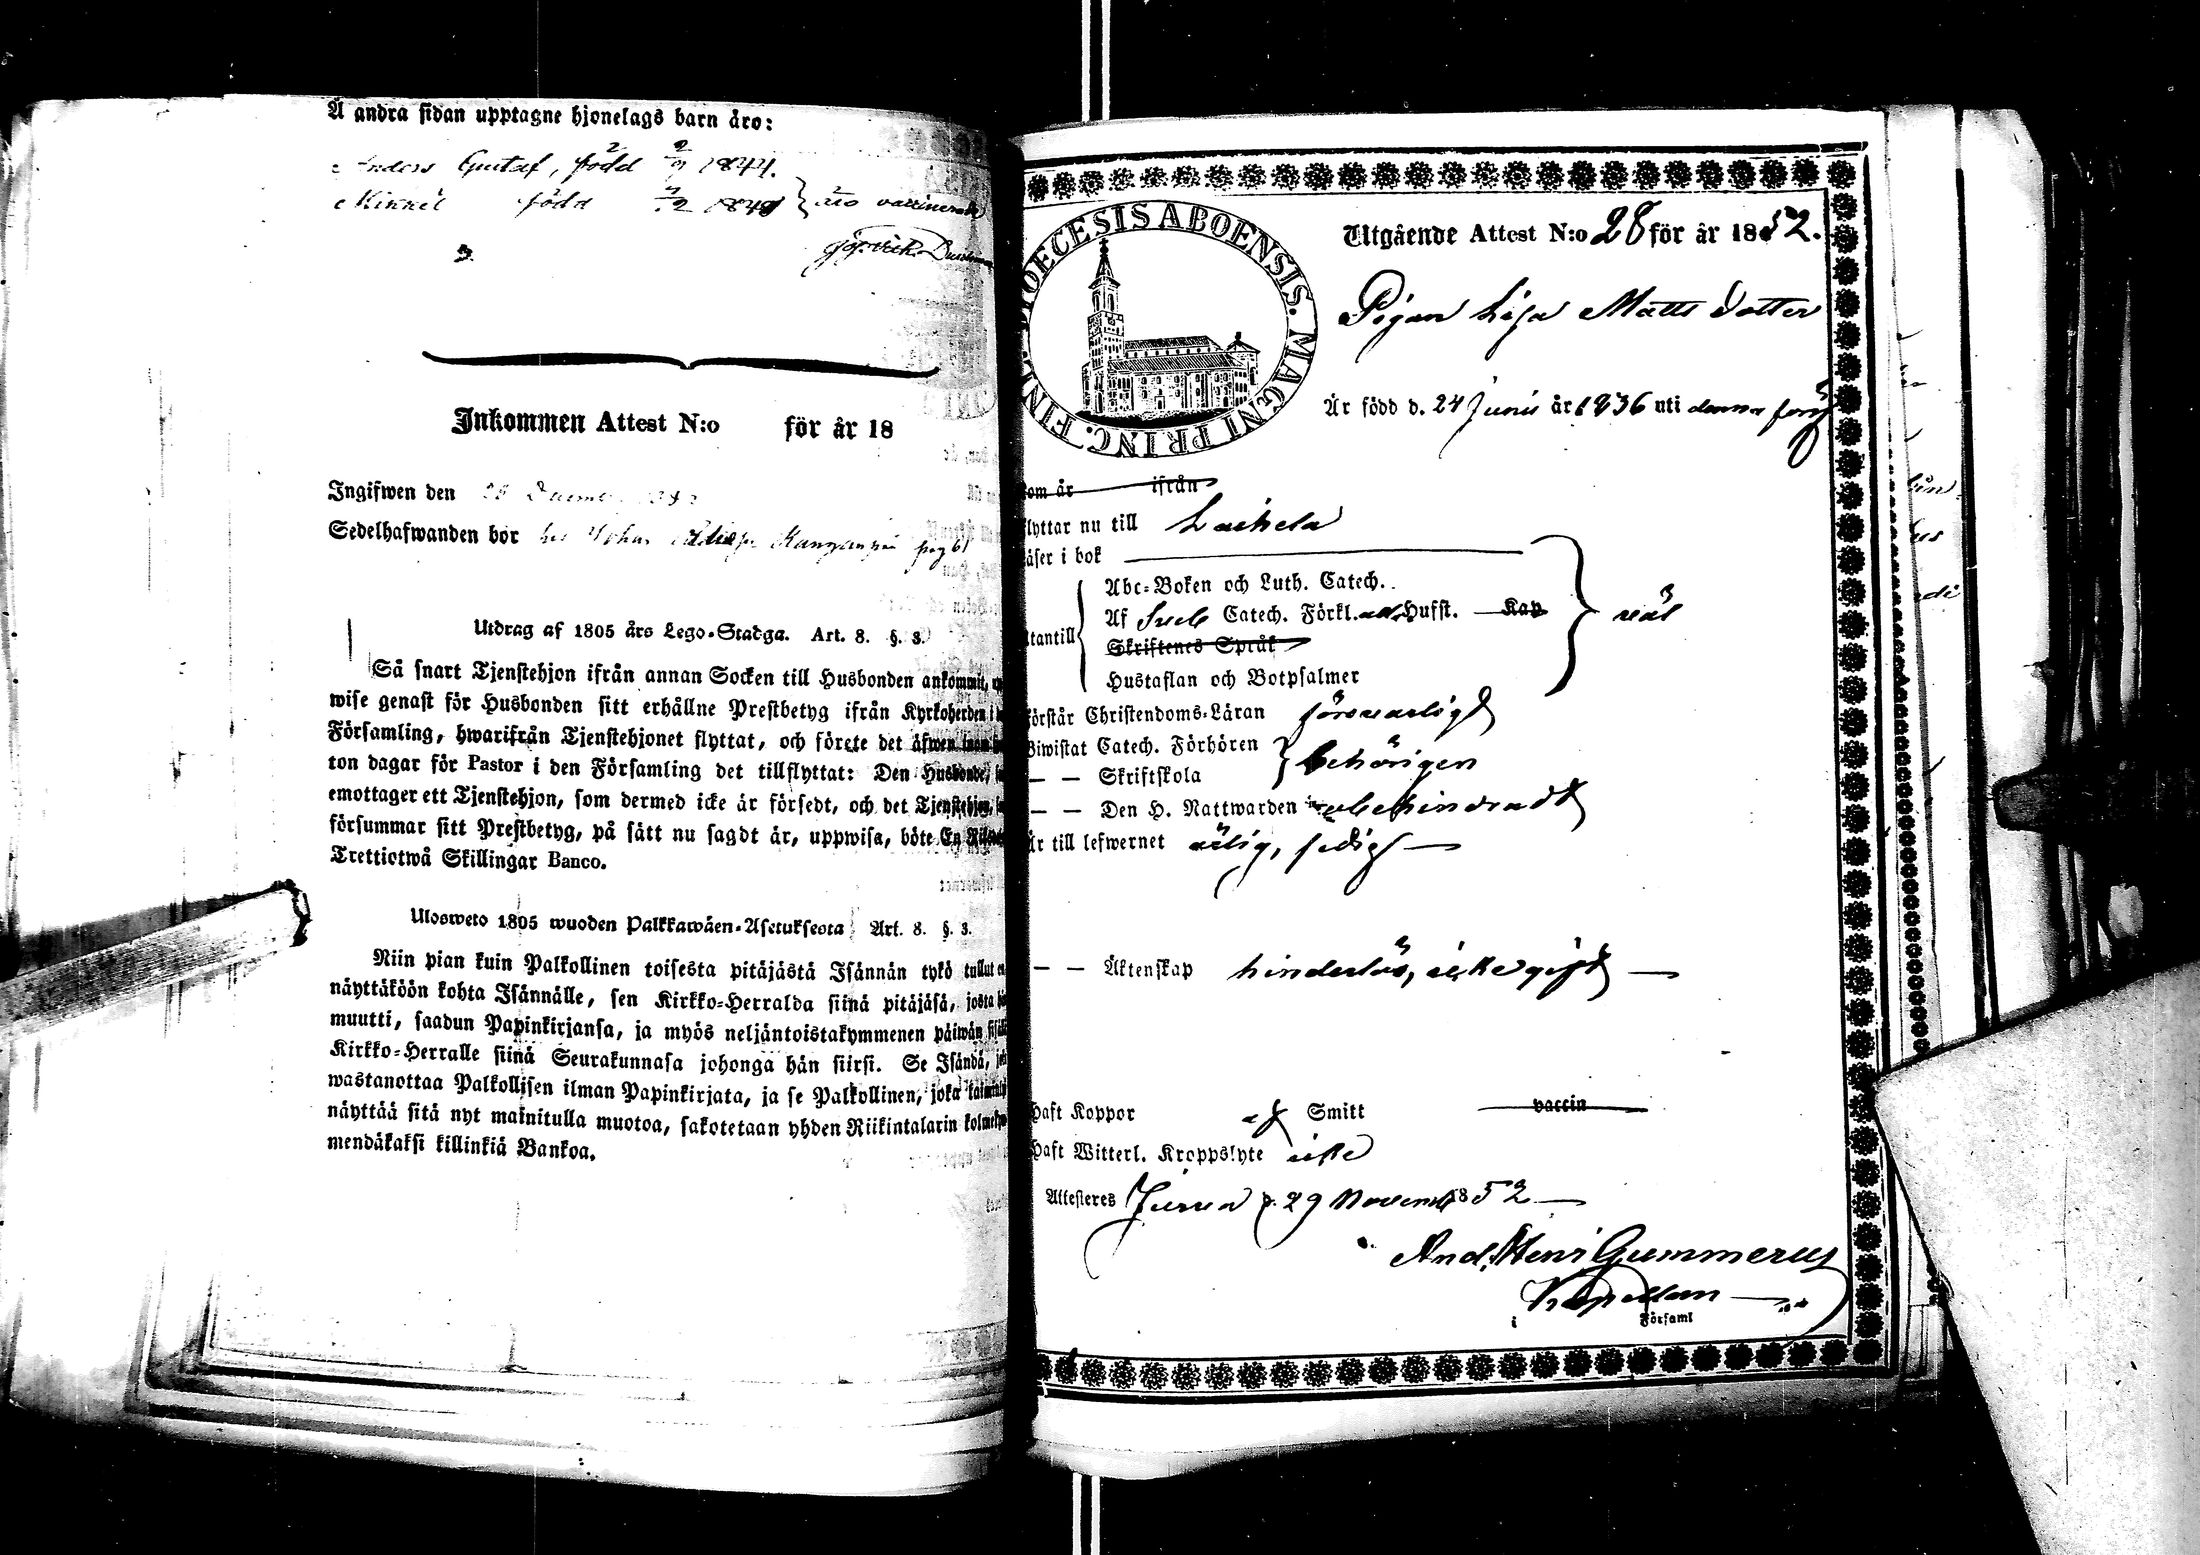 Å andra sidan upptagne hjonelags barn äro:
Anders Gustaf, född 2/9 1844.
Mikkel född äro vaccinerade
Inkommen Attest N:o för år 18
Ingifwen den
Sedelhafwanden bor hos Johan
Utdrag af 1805 års Lego-Stadga. Art. 8. §. 3.
Så snart Tjenstehjon ifrån annan Socken till Husbonden ankommit,
wise genast för Husbonden sitt erhållne Prestbetyg ifrån Kyrkoherden i
Församling, hwarifrån Tjenstehjonet flyttat, och förete det äfwen inom
ton dagar för Pastor i den Församling det tillflyttat: Den Husbonde,
emottager ett Tjenstehjon, som dermed icke är försedt, och det Tjenstehjon,
försummar sitt Prestbetyg, på sätt nu sagdt är, uppwisa, böte En
Trettiotwå Skillingar Banco.
Ulosweto 1805 wuoden Palkkawäen-Asetuksesta Art. 8. §. 3.
Niin pian kuin Palkollinen toisesta pitäjästä Isännän tykö tullut
näyttäköön kohta Isännälle, sen Kirkko-Herralda siinä pitäjäsä, josta
muutti, saadun Papinkirjansa, ja myös neljäntoistakymmenen päiwän
Kirkko-Herralle siinä Seurakunnasa johonga hän siirsi. Se Isändä,
wastanottaa Palkollisen ilman Papinkirjata, ja se Palkollinen, joka
näyttää sitä nyt mainitulla muotoa, sakotetaan yhden Riikintalarin
mendäkaksi killinkiä Bankoa.
DIOECESIS ABOENSIS. MAGNI PRINC. FIN
Utgående Attest N:o 28 för år 1852.
Pigan Lisa Matts dotter
Är född d. 24 Junii år 1836 uti denna förs
som är ifrån
flyttar nu till Laihela
läser i bok
Abc-Boken och Luth. Catech.
Af Sveb Catech. Förkl. Husst. Kap
utantill
Skriftenes Språk
Hustaflan och Botpsalmer
Förstår Christendoms-Läran försvarligt
Biwistat Catech. Förhören
behörigen
— — Skriftskola
— — Den H. Nattwarden obehindradt
är till lefwernet ärlig, sedig
— — Äktenskap hinderlös, icke gift
Haft Koppor af Smitt vaccin
Haft Witterl. Kroppslyte icke
Attesteres Jurva d. 29 Novemb 1852
And. Henr Gummerus
Kapellan
i Församl